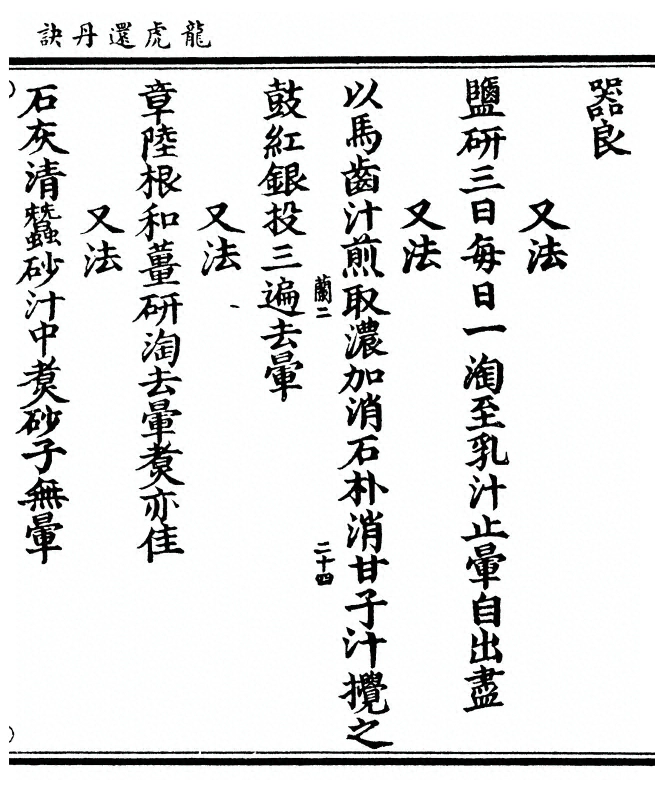 龍虎還丹訣
器良
又法
鹽研三日每日一淘至乳汁止暈自出盡
又法
以馬齒汁煎取濃加消石朴消甘子汁攪之
蘭二
二十四
鼓紅銀投三遍去暈
又法
章陸根和薑研淘去暈煑亦佳
又法
石灰清蠶砂汁中煑砂子無暈